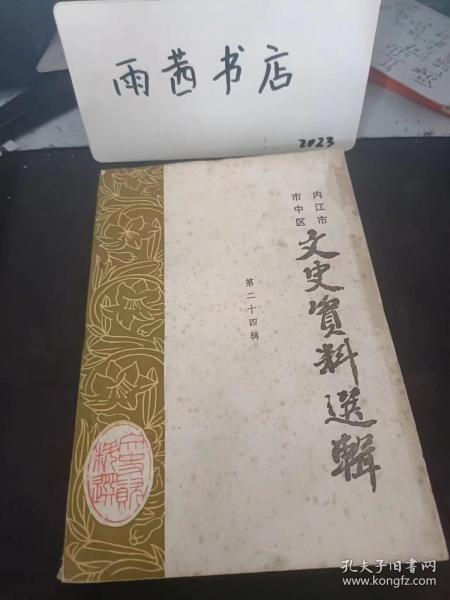 雨茜书店
2023
内江市
市中区
文史資料選輯
第二十四辑
孔夫子旧书网
www.kongfz.com